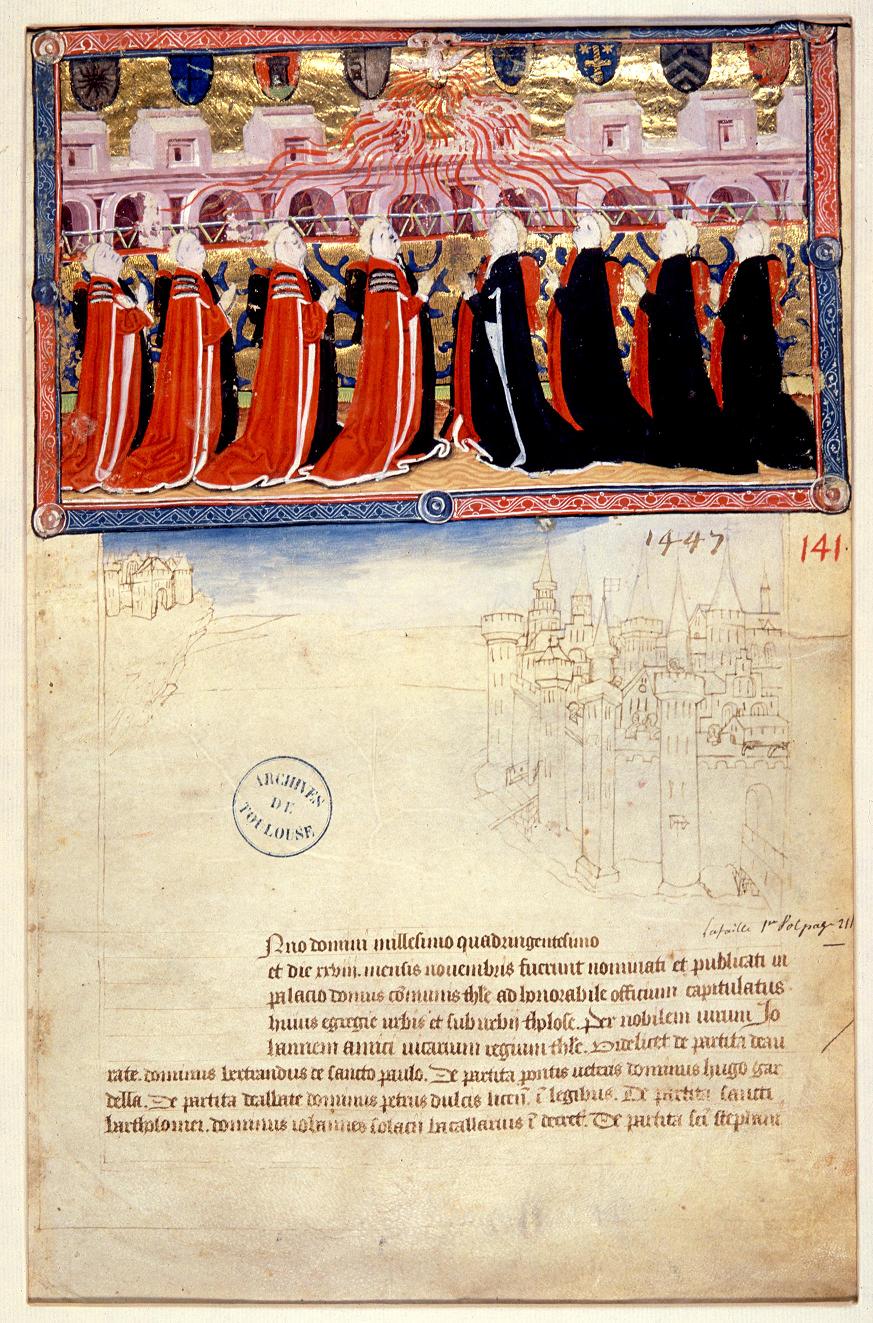 1447
141
ARCHIVES
DE
TOULOUSE
Lafaille 1er
Anno domini millesimo quadringentesimo
et die xxviii. mensis novembris fuerunt nominati et publicati in
palacio domus cõmunis thle ad honorabile officium capitulatus
huius egregie urbis et suburbii tholose. Per nobilem virum Jo
hannem amici vicarium regium thle. Videlicet de partita deau
rate. dominus bertrandus de sancto paulo. De partita pontis veteris dominus hugo gar
della. De partita dealbate dominus petrus dulcis licen̄. ī legibus. De partita sancti
bartholomei. dominus iohannes solacii bacallarius ī decret̄. De partita sci stephani